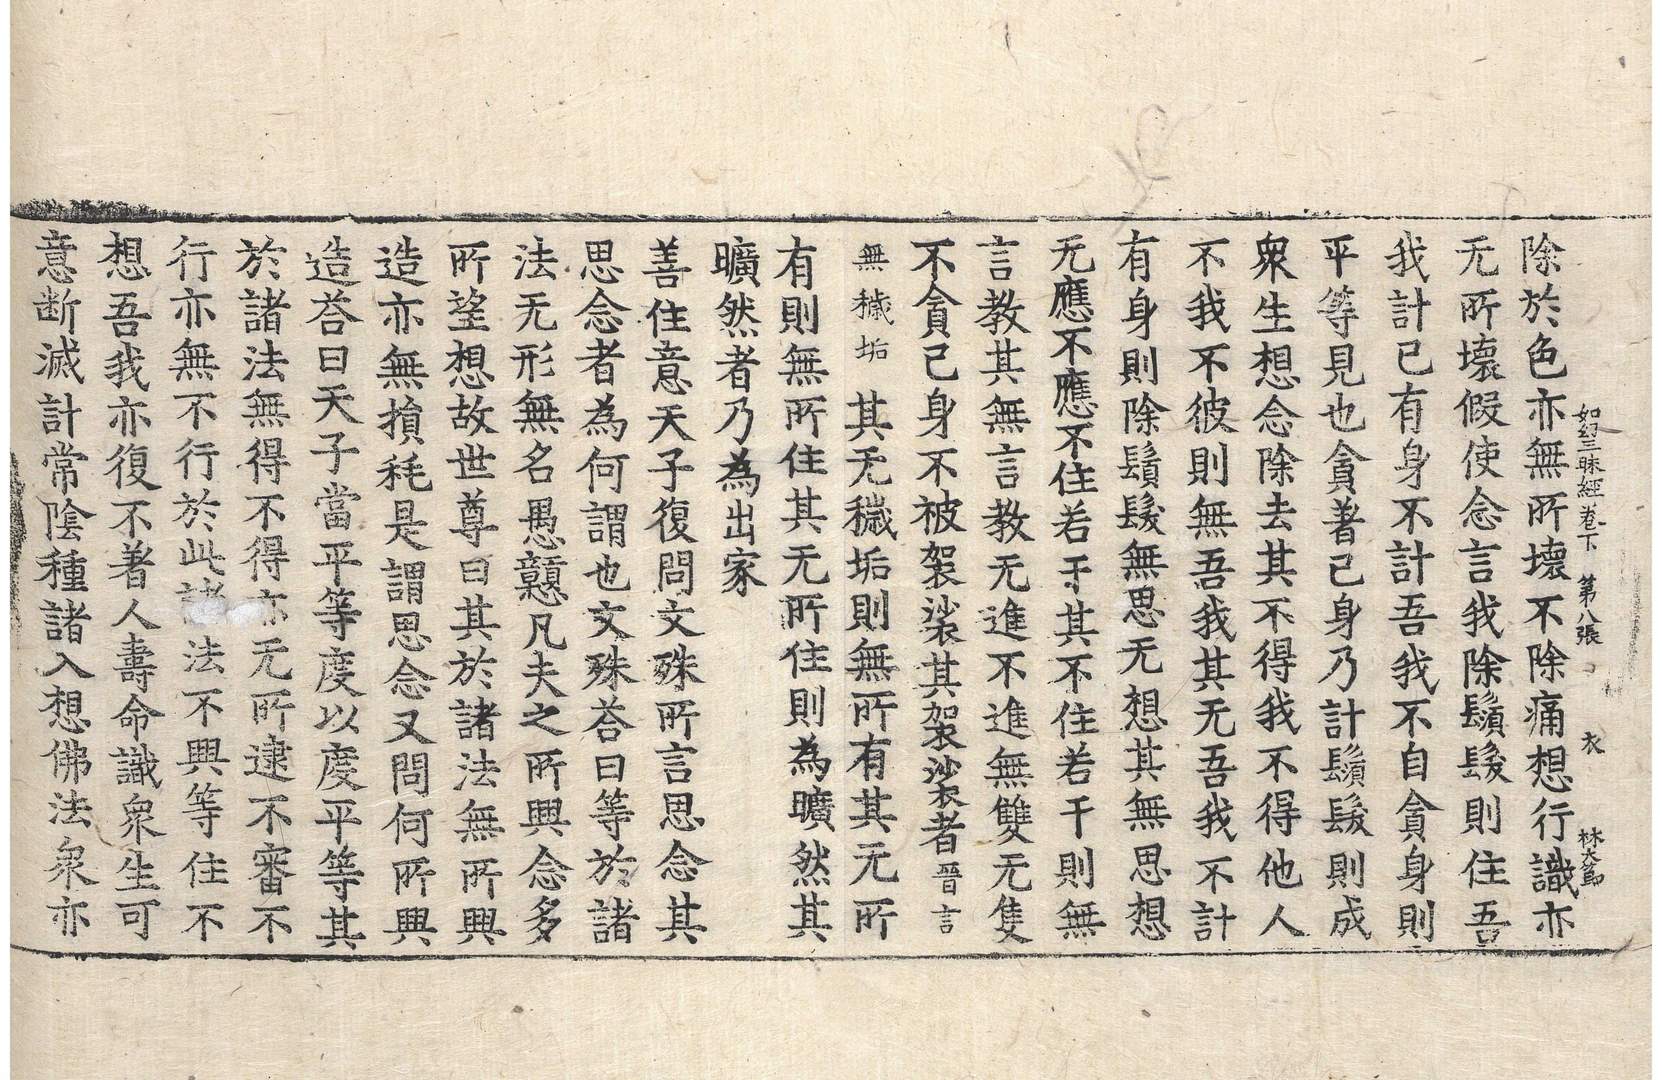 如幻三昧經卷下 第八張 衣 林大篤
除於色亦無所壞不除痛想行識亦
无所壞假使念言我除鬚髮則住吾
我計己有身不計吾我不自貪身則
平等見也貪著己身乃計鬚髮則成
衆生想念除去其不得我不得他人
不我不彼則無吾我其无吾我不計
有身則除鬚髮無思无想其無思想
无應不應不住若干其不住若干則無
言教其無言教无進不進無雙无隻
不貪己身不被袈裟其袈裟者晉言
無穢垢其无穢垢則無所有其无所
有則無所住其无所住則為曠然其
曠然者乃為出家
善住意天子復問文殊所言思念其
思念者為何謂也文殊荅曰等於諸
法无形無名愚戇凡夫之所興念多
所望想故世尊曰其於諸法無所興
造亦無損耗是謂思念又問何所興
造荅曰天子當平等度以度平等其
於諸法無得不得亦无所逮不審不
行亦無不行於此諸法不興等住不
想吾我亦復不著人壽命識衆生可
意断滅計常陰種諸入想佛法衆亦